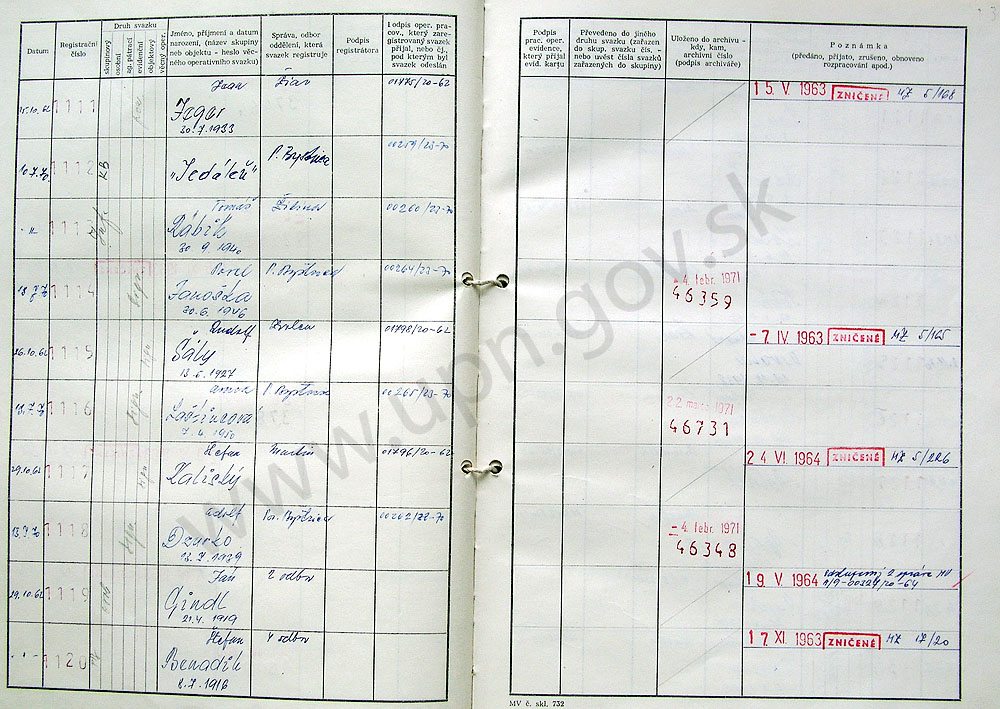 Datum
Registrační číslo
Druh svazku
skupinový
osobní
sg. pátrací
evidenční
objektový
věcný oper.
Jméno, příjmení a datum
narození, (název skupiny
neb objektu - heslo věc-
ného operativního svazku)
Správa, odbor
oddělení, která
svazek registruje
Podpis
registrátora
Podpis oper. pracov., který zare-
gistrovaný svazek
přijal, nebo čj.,
pod kterým byl
svazek odeslán
Podpis
prac. oper.
evidence,
který přijal
evid. kartu
Převedeno do jiného
druhu svazku (zařazen
do skup. svazku čís. -
nebo uvést čísla svazků
zařazených do skupiny)
Uloženo do archivu -
kdy, kam,
archivní číslo
(podpis archiváře)
Poznámka
(předáno, přijato, zrušeno, obnoveno
rozpracování apod.)
15.10.62 1111 Ivan Žiar 01775/20-62 15. V 1963 ZNIČENÉ MZ 5/168
30.7.1933
1112 KB "Jedáleň" P. Bystrica 00259/23-70
Tomáš Žilina 00260/23-70
Rábik
30 9 1940
1114 Pavel P. Bystrica 00264/23-70 -4. febr. 1971
Janoška 46359
30.6.1946
26.10.62 1115 Rudolf Zvolen 01798/20-62 -7. IV 1963 ZNIČENÉ MZ 5/165
Sály
13.6.1927
1116 P. Bystrica 00265/23-70 22. marca 1971
46731
7. 4. 1950
29.10.62 1117 Štefan Martin 01796/20-62 24. VI 1964 ZNIČENÉ MZ 5/226
Kališký
1118 Adolf Pov. Bystrica 00262/23-70 -4. febr. 1971
Dzurko 46348
13.7.1939
29.10.62 1119 Ján 2 odbor 19. V 1964
Gindl
21.4.1919
1120 Štefan 4 odbor 17. XI. 1963 ZNIČENÉ MZ 17/20
Benadik
8.7.1916
MV č. skl. 732
www.upn.gov.sk